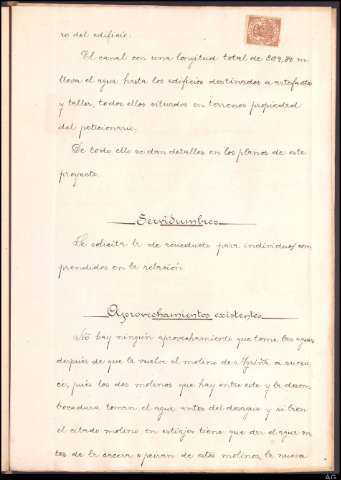 ro del edificio.
El canal con una longitud total de 309,80 m
lleva el agua hasta los edificios destinados a artefacto
y taller, todos ellos situados en terrenos propiedad
del peticionario.
De todo ello se dan detalles en los planos de este
proyecto.
Servidumbres
Se solicita la de acueducto para individuos com
prendidos en la relación
Aprovechamientos existentes
No hay ningún aprovechamiento que tome las aguas
después de que la vuelve el molino de a su cau
ce, pués los dos molinos que hay entre este y la desem
bocadura toman el agua antes del desagüe y si bien
el citado molino en estiajes tiene que dar el agua an
tes de la de estos molinos, la nueva